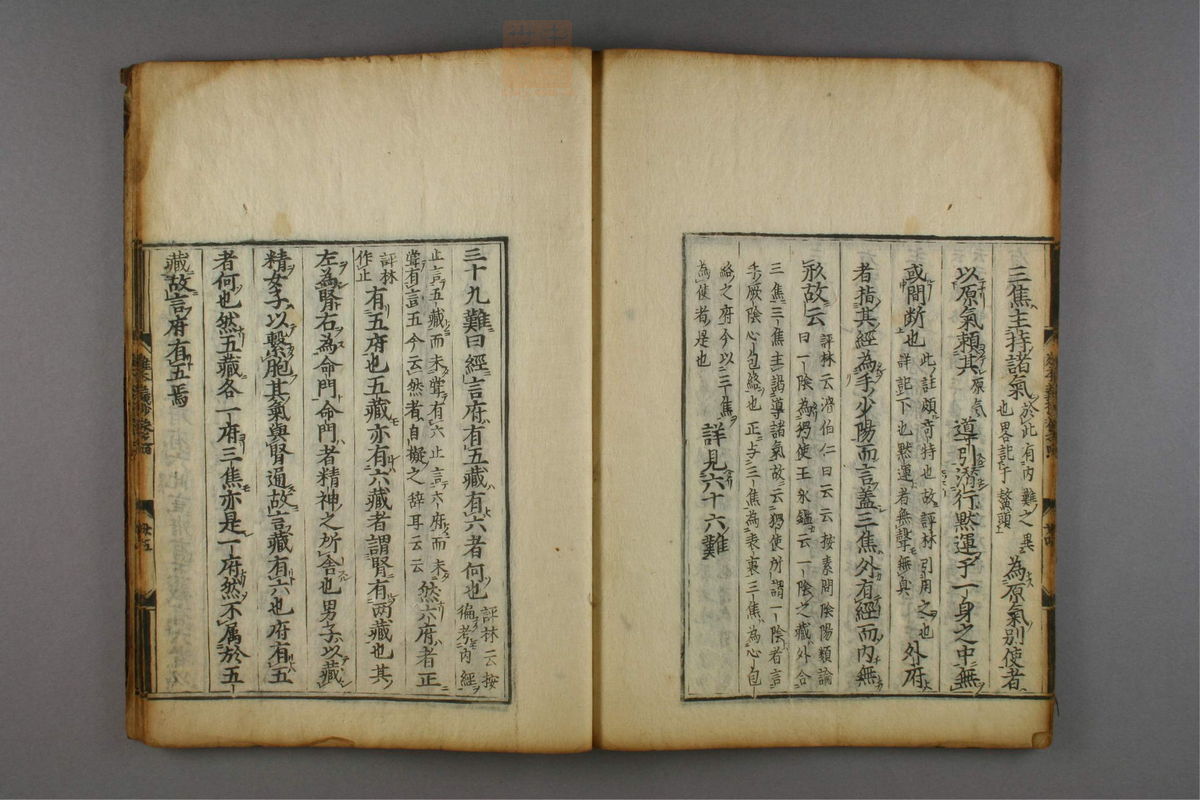 三焦主持諸氣 於此有内難之異
也畧記于鼇頭 為原氣別使者
以原氣頼其 原氣 導引潜行黙運于一身之中無
或間断也 此註頗竒特也故評林引用之也
詳記下也黙運者無聲無臭 外府
者指其經為手少陽而言蓋三焦外有經而内無
形故云 評林云滑伯仁曰云云按素問陰陽類論
曰一陰為獨使王氷鑑云一陰之藏外合
三焦三焦主謁導諸氣故云獨使所謂一陰者言
手厥陰心包絡也正与三焦為表裏三焦為心包
絡之府今以三焦
為使者是也 詳見六十六難
三十九難曰經言府有五藏有六者何也 評林云按
徧考内經
止言五藏而未甞有六止言六府而未
甞有言五今云然者自擬之辞耳云云 然六府者正
評林
作止 有五府也五藏亦有六藏者謂腎有两藏也其
左為腎右為命門命門者精神之所舎也男子以藏
精女子以繫胞其氣與腎通故言藏有六也府有五
者何也然五藏各一府三焦亦是一府然不属於五
藏故言府有五焉